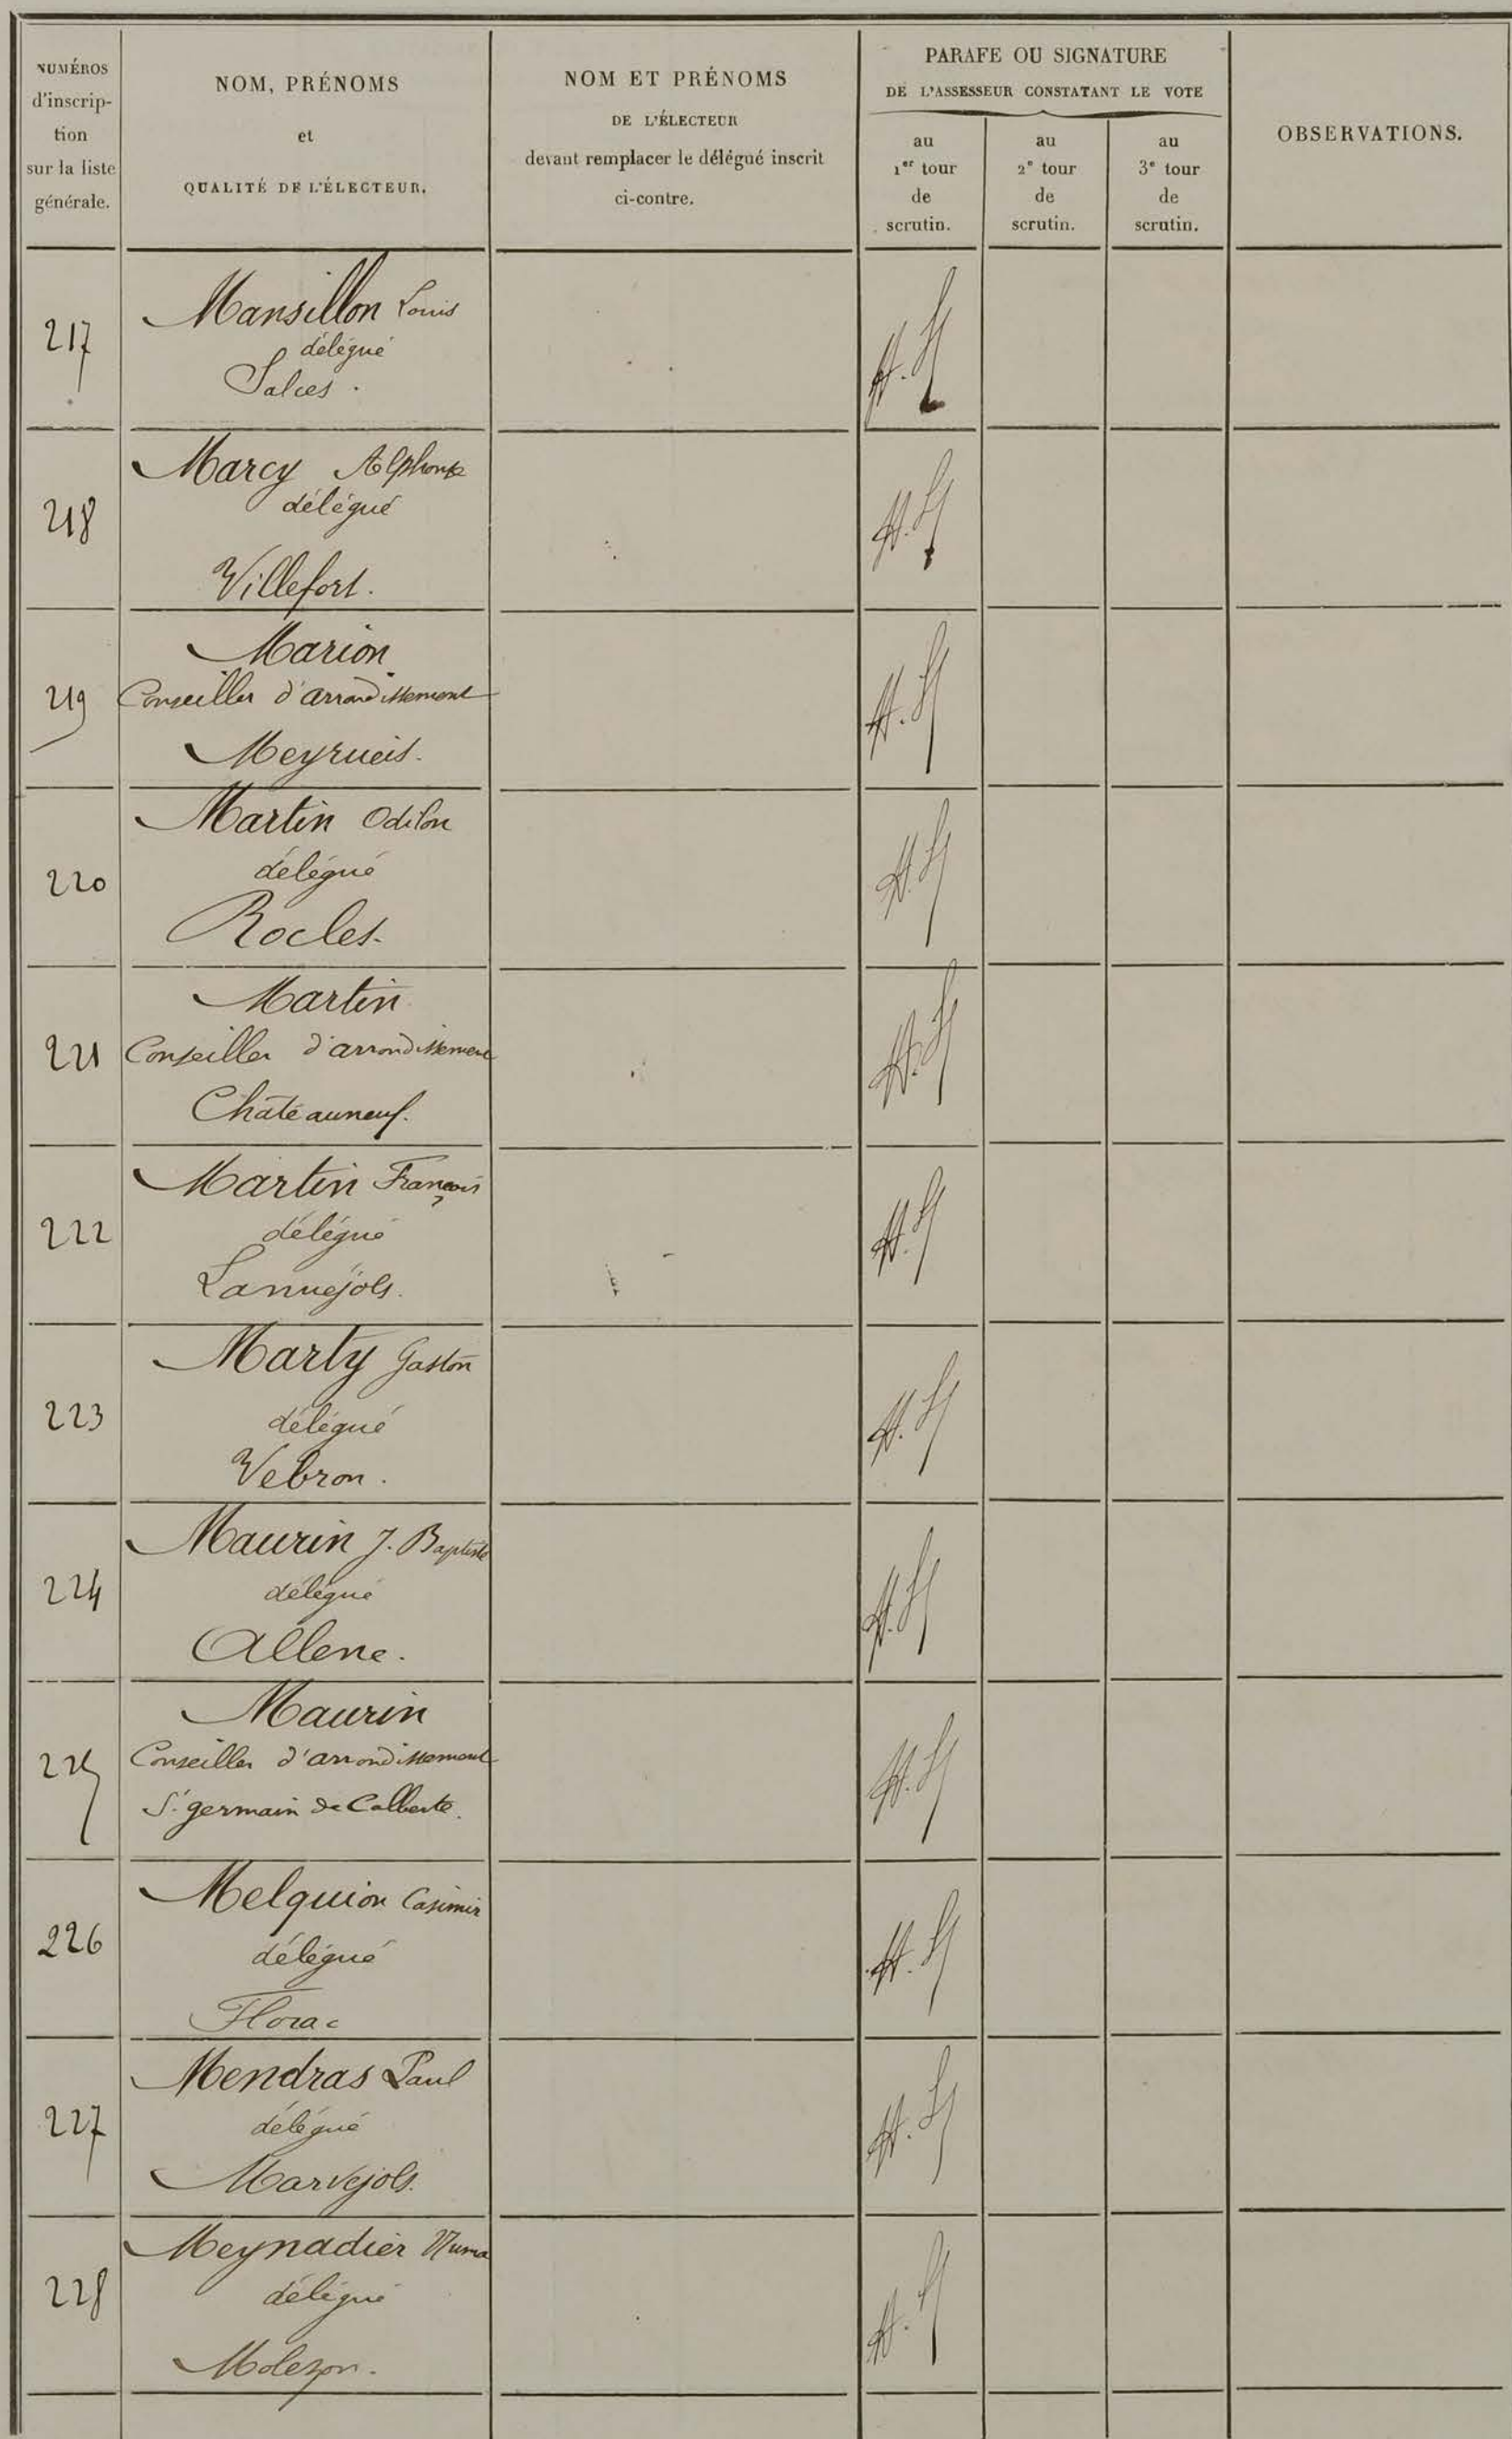 NUMÉROS
d'inscrip-
tion
sur la liste
générale.
NOM, PRÉNOMS
et
QUALITÉ DE L'ÉLECTEUR.
NOM ET PRÉNOMS
DE L'ÉLECTEUR
devant remplacer le délégué inscrit
ci-contre.
PARAFE OU SIGNATURE
DE L'ASSESSEUR CONSTATANT LE VOTE
au
1er tour
de
scrutin.
au
2e tour
de
scrutin.
au
3e tour
de
scrutin.
OBSERVATIONS.
217
Mansillon Louis
délégué
Salces.
218
Marcy Alphonse
délégué
Villefort.
219
Marion
Conseiller d'arrondissement
Meyrueis.
220
Martin Odilon
délégué
Rocles.
221
Martin
Conseiller d'arrondissement
Châteauneuf.
222
Martin François
délégué
Lanuéjols.
223
Marty Gaston
délégué
Vebron.
224
Maurin J. Baptiste
délégué
Allenc.
225
Maurin
Conseiller d'arrondissement
St germain de Calberte.
226
Melquion Casimir
délégué
Florac
227
Mendras Paul
délégué
Marvejols.
228
Meynadier Numa
délégué
Molezon.